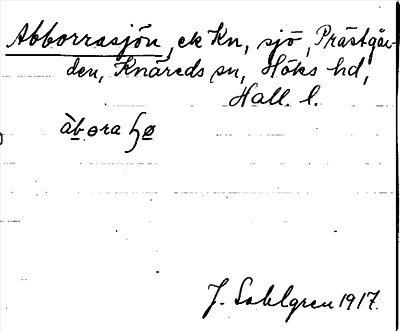 Abborrasjön, ek Kn, sjö, Prästgår-
den, Knäreds sn, Höks hd,
Hall. l.
àb.ora ɧø
J. Sahlgren 1917.